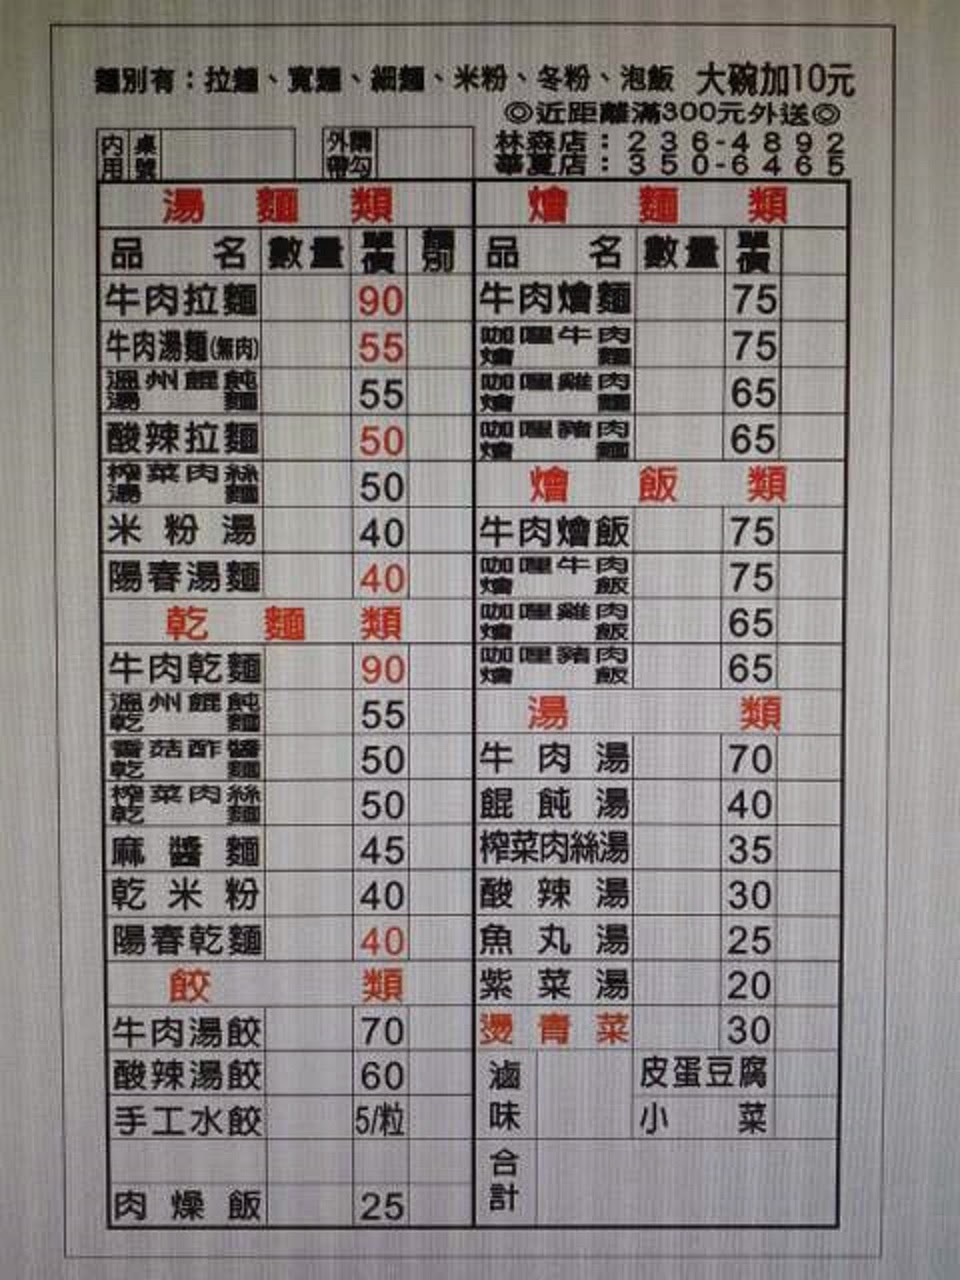 麵別有：拉麵、寬麵、細麵、米粉、冬粉、泡飯 大碗加10元
◎近距離滿300元外送◎
內用 桌號 外帶 請勾
林森店：236-4892
華夏店：350-6465
湯麵類
品名 數量 單價 麵別
牛肉拉麵 90
牛肉湯麵(無肉) 55
溫州餛飩湯麵 55
酸辣拉麵 50
榨菜肉絲湯麵 50
米粉湯 40
陽春湯麵 40
乾麵類
牛肉乾麵 90
溫州餛飩乾麵 55
香菇酢醬乾麵 50
榨菜肉絲乾麵 50
麻醬麵 45
乾米粉 40
陽春乾麵 40
餃類
牛肉湯餃 70
酸辣湯餃 60
手工水餃 5/粒
肉燥飯 25
燴麵類
品名 數量 單價
牛肉燴麵 75
咖哩牛肉燴麵 75
咖哩雞肉燴麵 65
咖哩豬肉燴麵 65
燴飯類
牛肉燴飯 75
咖哩牛肉燴飯 75
咖哩雞肉燴飯 65
咖哩豬肉燴飯 65
湯類
牛肉湯 70
餛飩湯 40
榨菜肉絲湯 35
酸辣湯 30
魚丸湯 25
紫菜湯 20
燙青菜 30
滷味 皮蛋豆腐
小菜
合計